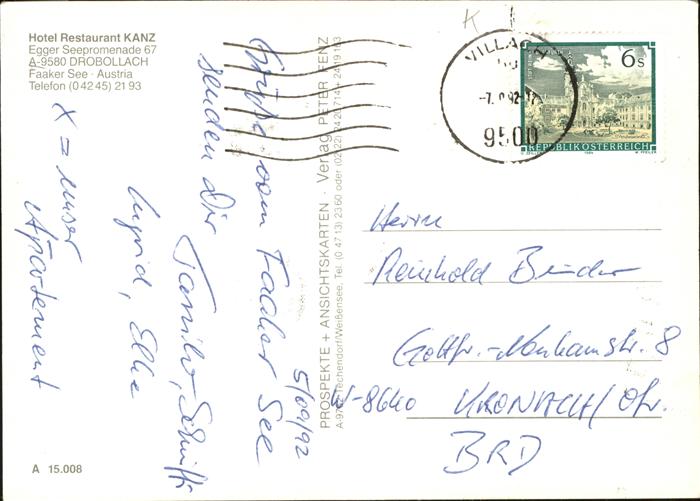 Hotel Restaurant KANZ
Egger Seepromenade 67
A-9580 DROBOLLACH
Faaker See · Austria
Telefon (0 42 45) 21 93
X = unser
Apartement
Grüße vom Faaker See
senden dir
Familie
Ingrid, Elke
5/09/92
PROSPEKTE + ANSICHTSKARTEN · Verlag PETER FENZ
Techendorf/Weißensee, Tel. (0 47 13) 23 60 oder (02 22)
VILLACH
9500
6 S
REPUBLIK ÖSTERREICH
Herrn
Reinhold
8
8640 KRONACH/Ofr.
BRD
A 15.008